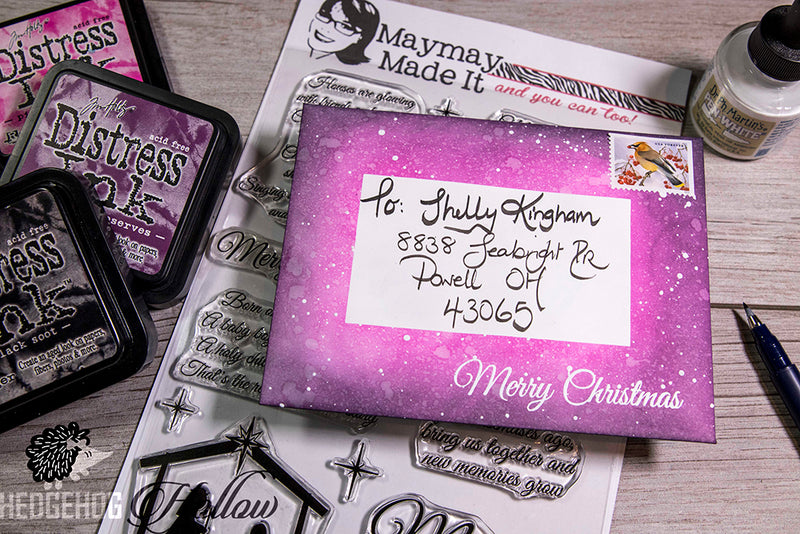 Tim Holtz
acid free
Distress
Ink
Tim Holtz
acid free
Distress
Ink
acid free
Distress
Ink
black soot
Create an aged look on papers,
fibers, photos & more!
Maymay
Made It
and you can too!
Houses are glowing
Singing
and
Merry
Born
A baby boy
A holy child
That's the
To: Shelly Kingham
8838 Seabright DR
Powell OH
43065
Merry Christmas
USA FOREVER
Dr. Ph. Martin's
WHITE
ago,
bring us together and
new memories grow
HEDGEHOG
Hollow